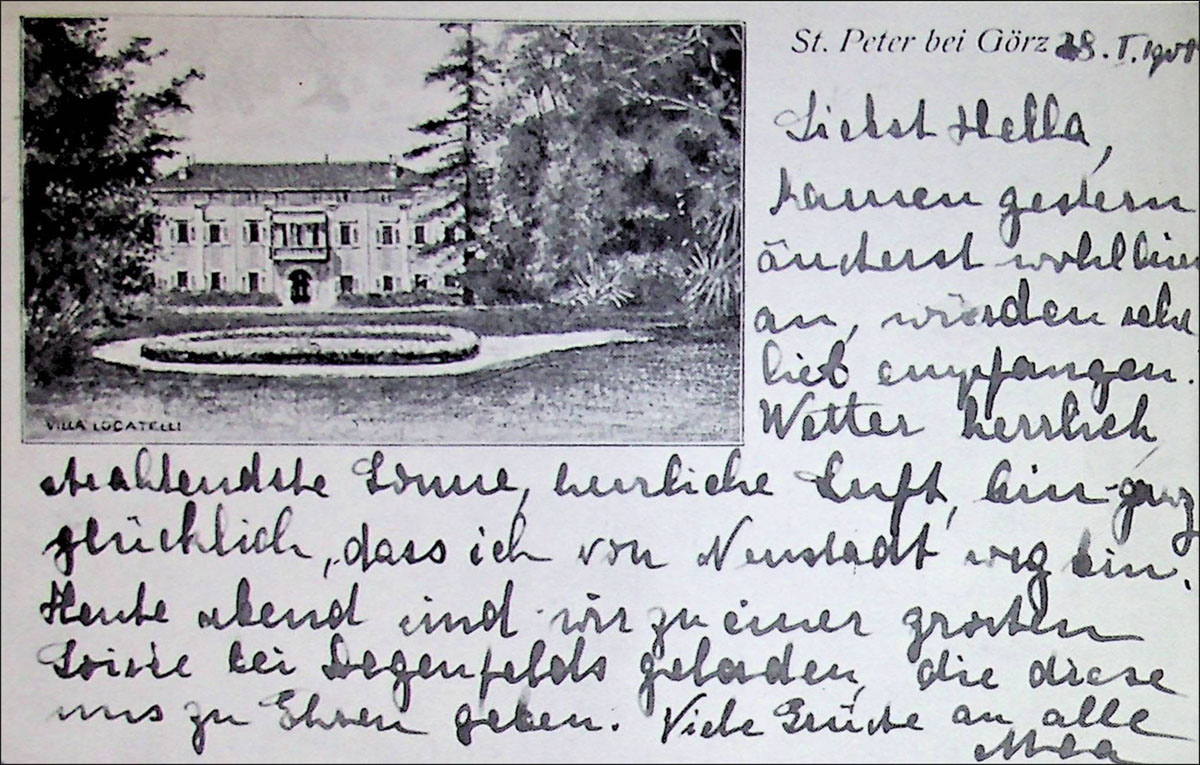 St. Peter bei Görz 28. I. 1901
VILLA LOCATELLI
Liebst Hella,
kamen gestern
äußerst wohl hier
an, würden sehr
lieb empfangen.
Wetter herrlich,
strahlendste Sonne, herrliche Luft, bin ganz
glücklich, dass ich von Neustadt weg bin.
Heute abend sind wir zu einer großen
Soirée bei Degenfelds geladen, die diese
uns zu Ehren geben. Viele Grüße an alle